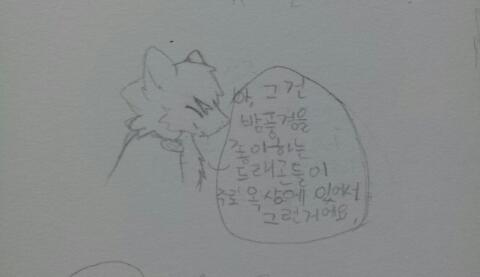 아, 그건
밤풍경을
좋아하는
드래곤들이
주로 옥상에 있어서
그런거에요,